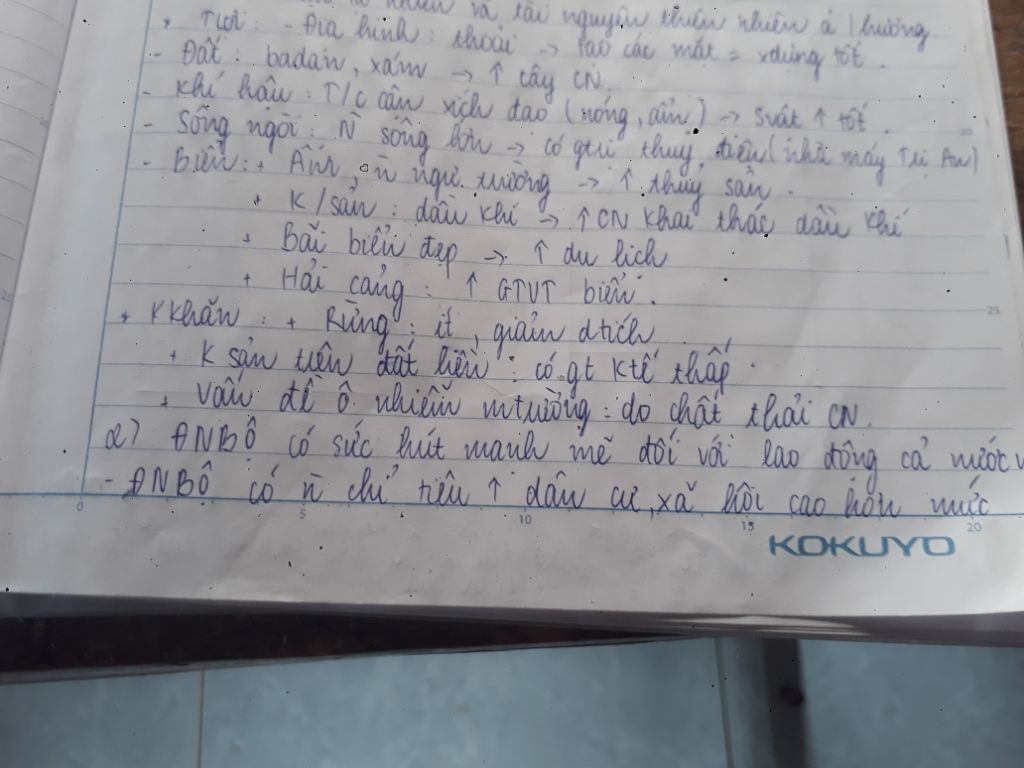 nhiên và tài nguyên thiên nhiên ả/hưởng
* Tlợi : - Địa hình : thoải → tạo các mặt = xdựng tốt .
- Đất : badan, xám → ↑ cây CN.
- Khí hậu : T/C cận xích đạo (nóng, ẩm) → svật ↑ tốt .
- Sông ngòi : N̄ sông lớn → có gtrị thuỷ điện (nhà máy Trị An)
- Biển : + Ấm, n̄ ngư trường → ↑ thuỷ sản .
+ K/sản : dầu khí → ↑ CN khai thác dầu khí
+ Bãi biển đẹp → ↑ du lịch
+ Hải cảng : ↑ GTVT biển .
* Kkhăn : + Rừng : ít , giảm dtích
+ K sản trên đất liền : có gt ktế thấp .
+ Vấn đề ô nhiễm mtrường : do chất thải CN.
2) ĐNBộ có sức hút mạnh mẽ đối với lao động cả nước
- ĐNBộ có n̄ chỉ tiêu ↑ dân cư, xã hội cao hơn nước
0 5 10 15 20
25
KOKUYO